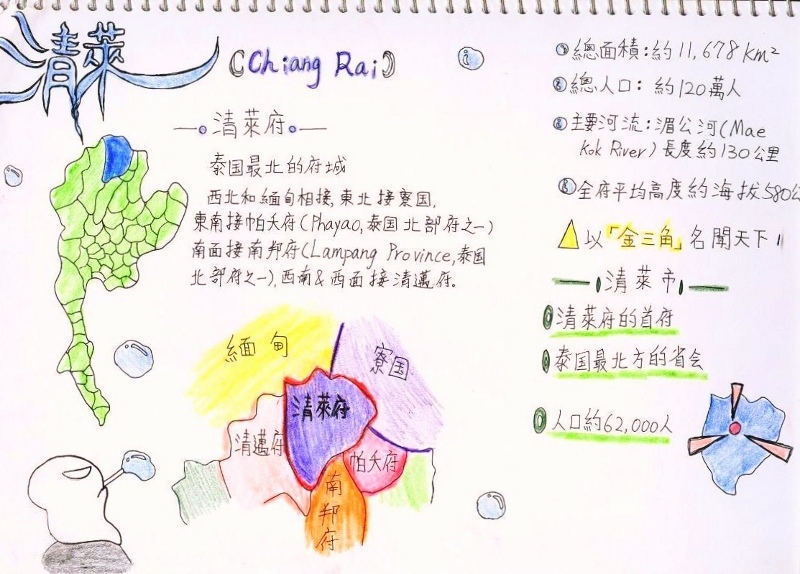 清萊
(Chiang Rai)
清萊府
泰国最北的府城
西北和緬甸相接,東北接寮国,
東南接帕夭府(Phayao,泰国北部府之一)
南面接南邦府(Lampang Province,泰国
北部府之一),西南&西面接清邁府。
緬甸
寮国
清萊府
清邁府
帕夭府
南邦府
總面積:約11,678km²
總人口:約120萬人
主要河流:湄公河(Mae
Kok River)長度約130公里
全府平均高度約海拔580公
以「金三角」名聞天下!!
清萊市
清萊府的首府
泰国最北方的省会
人口約62,000人